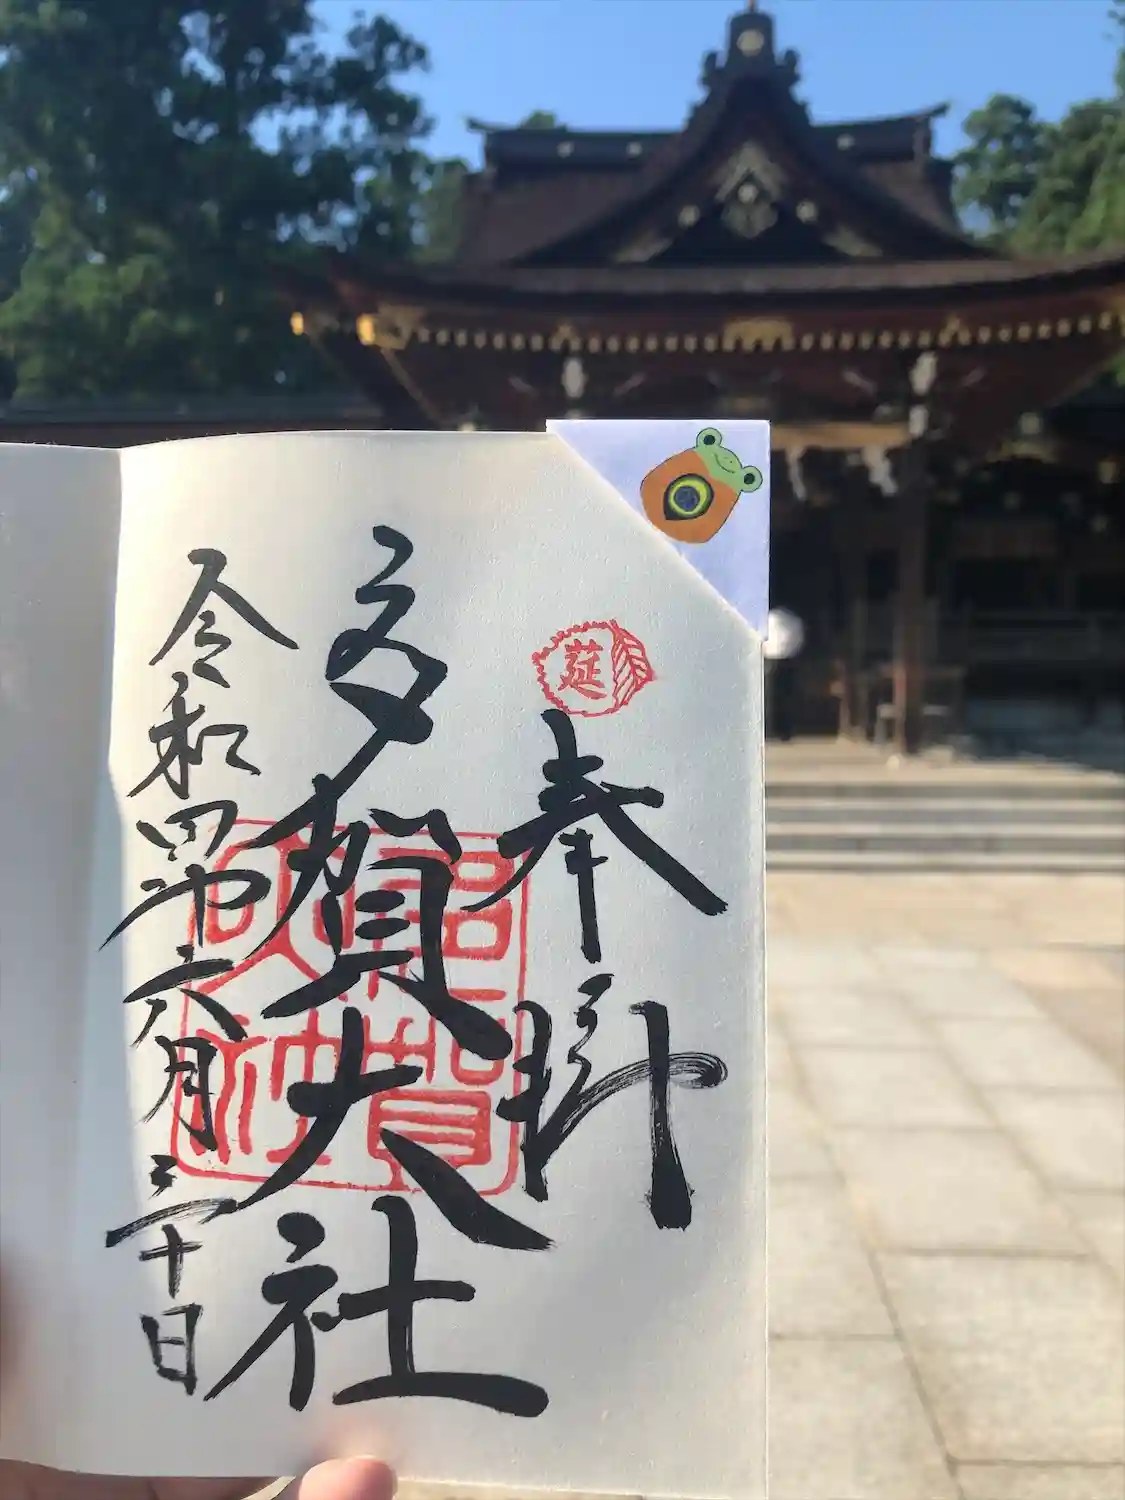 莚
奉拝
多賀大社
令和四年六月三十日
多賀大社